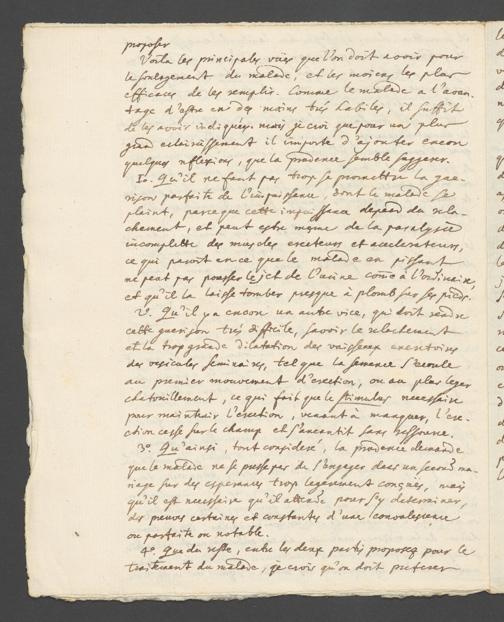 proposer
Voila les principales vües que l'on doit avoir pour
le soulagement du malade, et les moiens les plus
efficaces de les remplir. Comme le malade a l'avan-
tage d'estre en des mains trés habiles, il suffit
de les avoir indiquées. mais je croi que pour un plus
grand eclaircissement il importe d'ajouter encore
quelques reflexions, que la prudence semble suggerer.
1o. Qu'il ne faut pas trop se promettre la gue-
rison parfaite de l'impuissance, dont le malade se
plaint, parceque cette impuissance depend du rela-
chement, et peut estre meme de la paralysie
incomplette des muscles erecteurs et accelerateurs,
ce qui paroit en ce que le malade en pissant
ne peut pas pousser le jet de l'urine come à l'ordinaire,
et qu'il la laisse tomber presque à plomb sur ses pieds.
2o. Qu'il y a encore un autre vice, qui doit rendre
cette guerison trés difficile, savoir le relachement
et la trop grande dilatation des vaisseaux excretoires
des vesicules seminaires, tel que la semence s'ecoule
au premier mouvement d'erection, ou au plus leger
chatouillement, ce qui fait que le stimulus necessaire
pour maintenir l'erection, venant à manquer, l'ere-
ction cesse sur le champ et s'aneantit sans ressource.
3o. Qu'ainsi, tout consideré, la prudence demande
que le malade ne se presse pas de s'engager dans un second ma-
riage sur des esperances trop legerement conçues, mais
qu'il est necessaire qu'il attende pour s'y determiner,
des preuves certaines et constantes d'une convalescence
ou parfaite ou notable.
4o. Que du reste, entre les deux partis proposez pour le
traitement du malade, je crois qu'on doit preferer